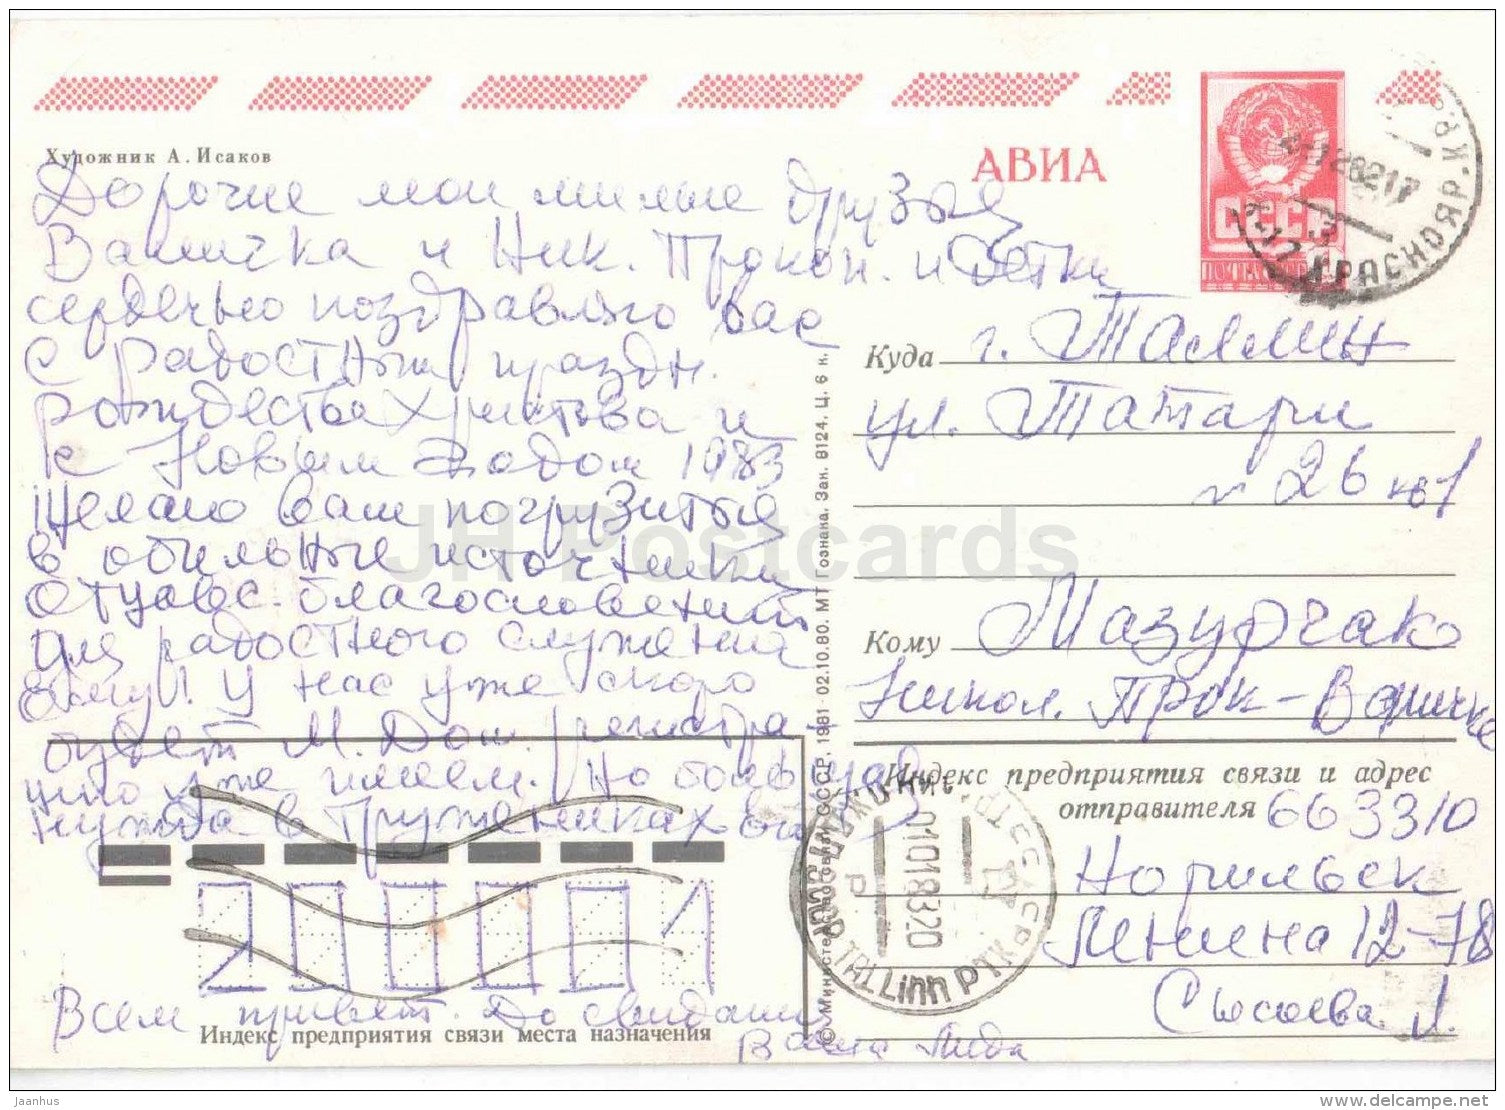 Художник А. Исаков
АВИА
СССР
ПОЧТА
КРАСНОЯР. КР.
Дорогие мои милые друзья
Валичка и Ник. Прокоп. и детки
сердечно поздравляю вас
с радостным праздн.
рождества Христва и
с Новым годом 1983
Желаю вам погрузиться
в обильные источники
благословений
для радостного служения
ему! У нас уже скоро
будет М. Дом. регистра
цию уже имеем. Но большая
нужда в тружениках
Всем привет. До свидания
Ваша Лида
Куда г. Таллин
ул. Татари
26 кв 1
Кому Мазурчак
Никол. Прок - Валичке
Индекс предприятия связи и адрес
отправителя 663310
Норильск
Ленина 12-78
Сысоева. Л.
200001
Индекс предприятия связи места назначения
© Министерство связи СССР. 1981 02.10.80. МТ Гознака. Зак. 8124. Ц. 6 к.
TALLinn
01018320
JH Postcards
Jaanhus
delcampe.net